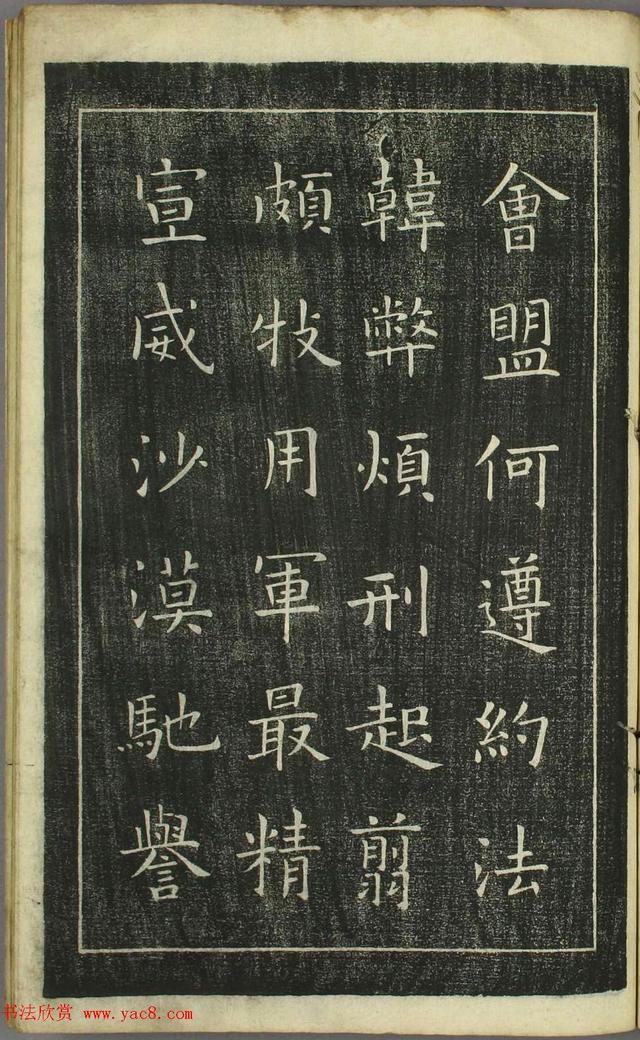 會盟何遵約法
韓弊煩刑起翦
頗牧用軍最精
宣威沙漠馳譽
书法欣赏 www.yac8.com